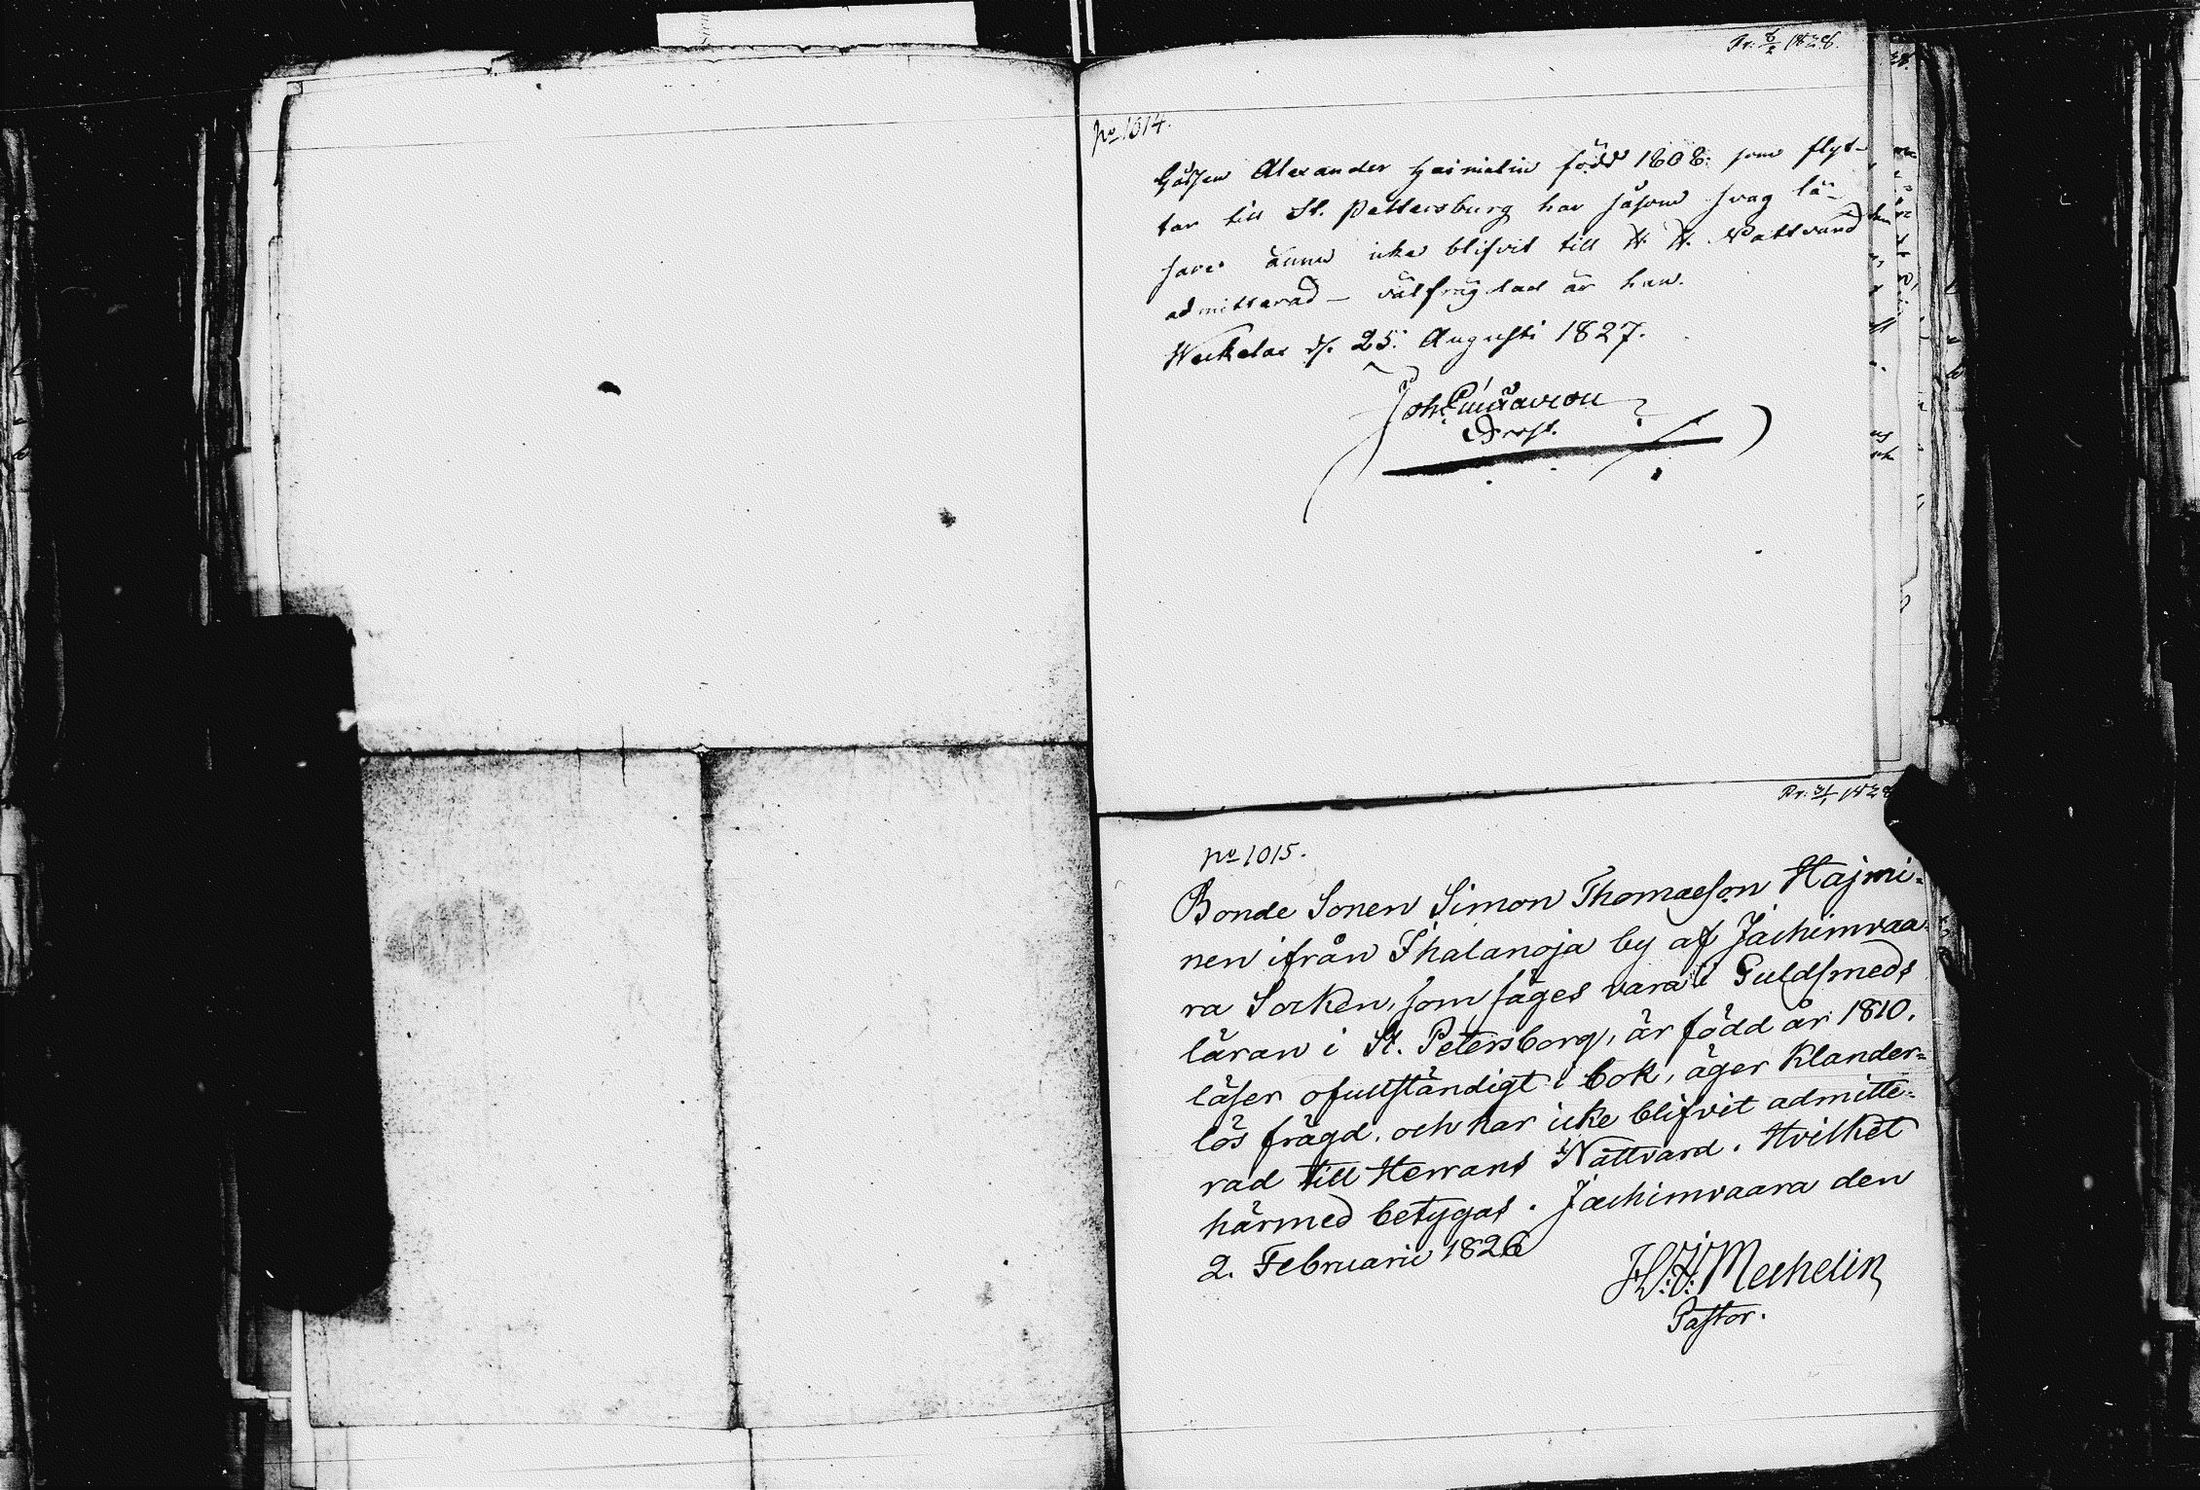 Pr: 8/2 1828.
No 1014.
Gossen Alexander Haimelin född 1808. som flyt-
tar till St. Pettersburg har såsom svag lä-
sare ännu icke blifvit till H. H. Nattvard
admitterad – välfrägdad är han.
Weckelax d. 25. Augusti 1827.
Joh:
Prost.
Pr: 31/1 1828
No 1015.
Bonde Sonen Simon Thomaeson Hajmi=
nen ifrån Ihalanoja by af Jachimvaa
ra Socken, som säges vara i Guldsmeds
läran i St. Petersborg, är född år 1810,
läser ofullständigt i bok, äger klander=
lös frägd, och har icke blifvit admitte=
rad till Herrans Nattvard. Hvilket
härmed betygas. Jachimvaara den
2. Februarii 1826
H. J. Mechelin
Pastor.